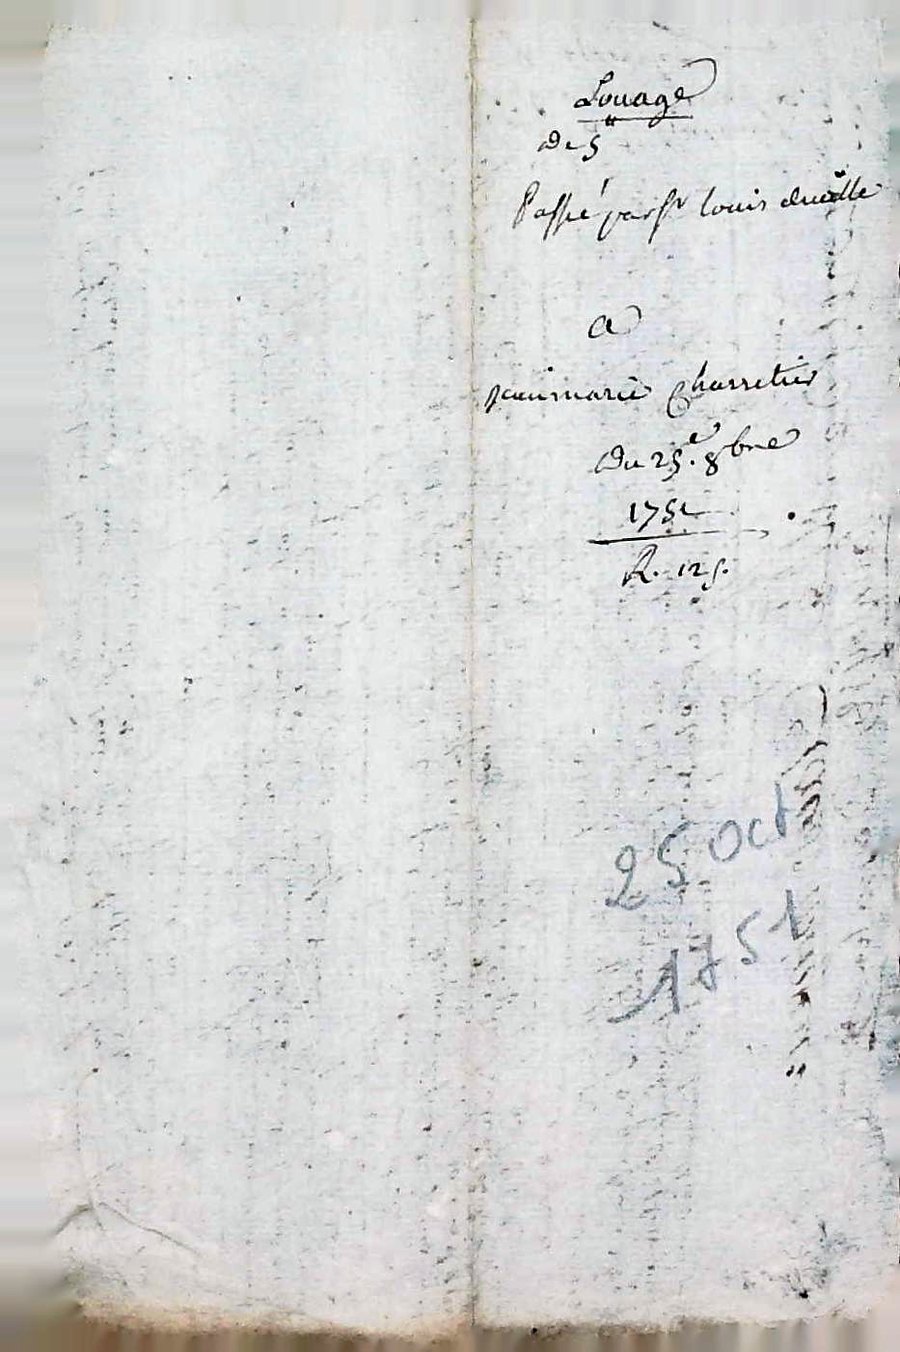 Louage
de 5
Passé par Sr louis
a
jeanmarie Charretier
du 25.e 8bre
1751
R. 12s.
25 oct
1751